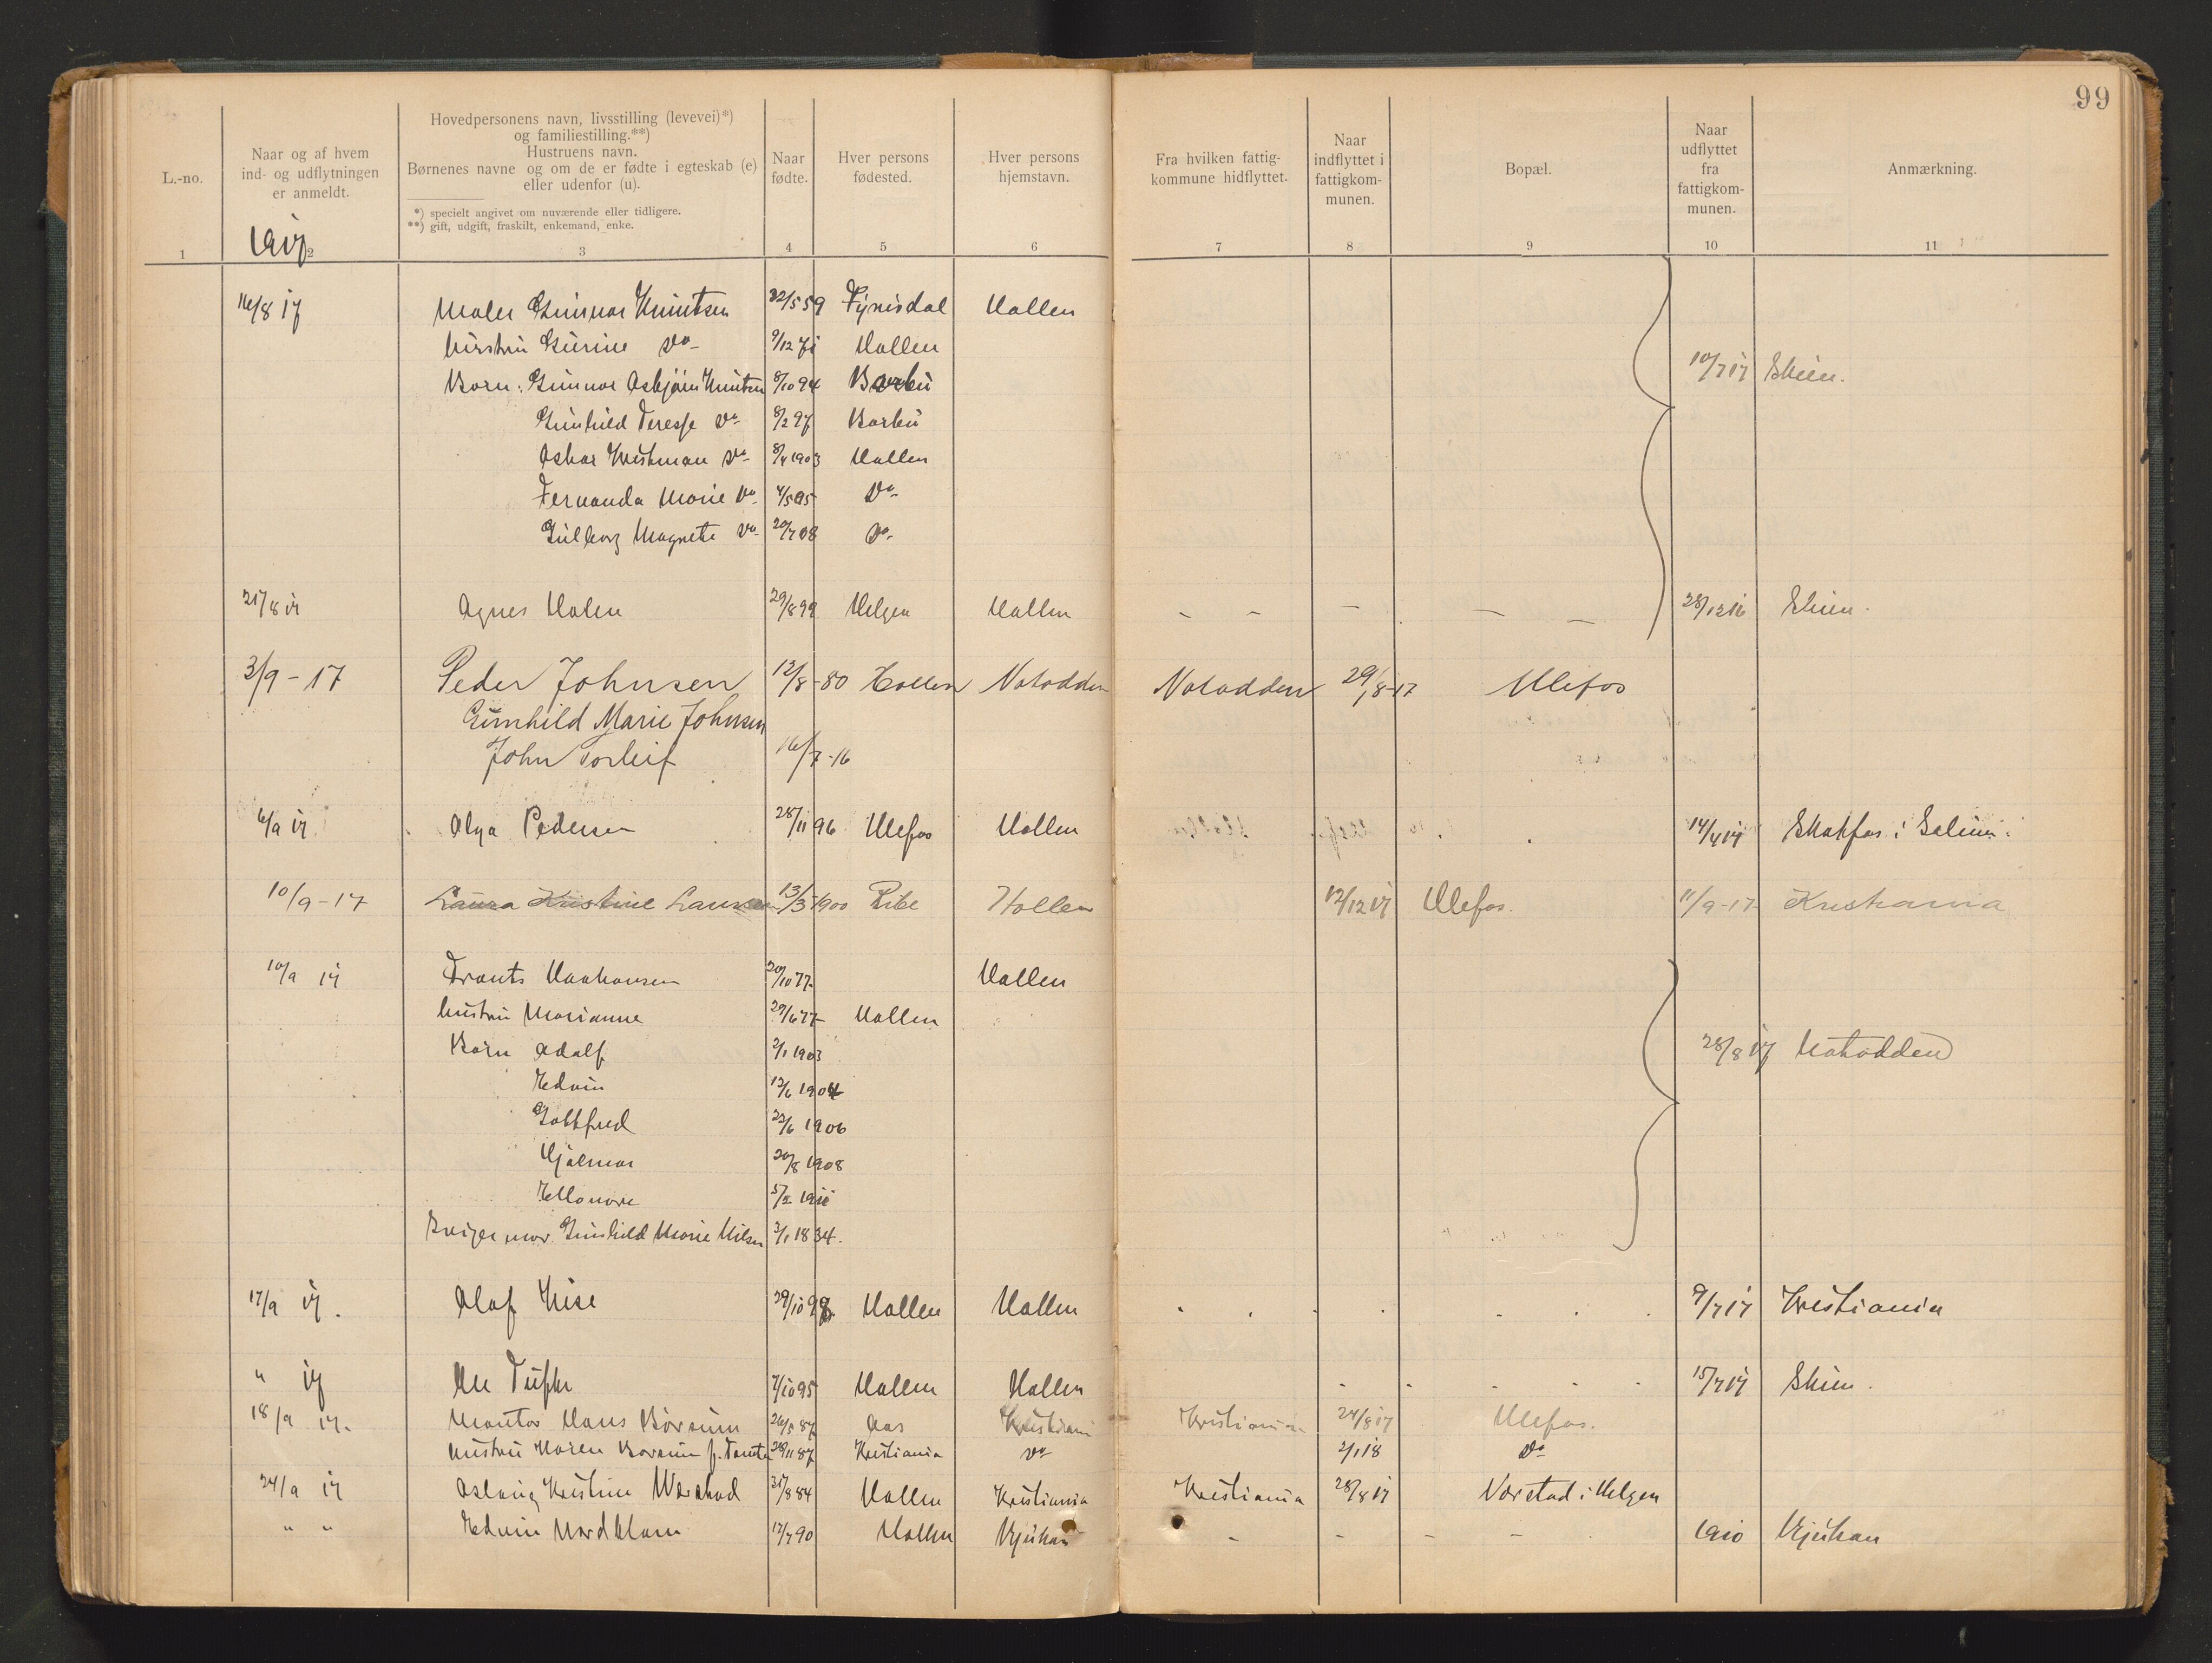 99
L.-no.
Naar og af hvem ind- og udflytningen er anmeldt.
Hovedpersonens navn, livsstilling (levevei)*) og familiestilling.**) Hustruens navn. Børnenes navne og om de er fødte i egteskab (e) eller udenfor (u).
*) specielt angivet om nuværende eller tidligere.
**) gift, udgift, fraskilt, enkemand, enke.
Naar fødte.
Hver persons fødested.
Hver persons hjemstavn.
Fra hvilken fattigkommune hidflyttet.
Naar indflyttet i fattigkommunen.
Bopæl.
Naar udflyttet fra fattigkommunen.
Anmærkning.
1 2 3 4 5 6 7 8 9 10 11
1917
16/8 17 Maler Gunnar Knutsen 22/5 59 Fyrisdal Hollen
Hustru Gurine Do 9/12 71 Hollen
Børn: Gunnar Asbjørn Knutsen 8/10 94 Barbu 10/7 17 Skien.
Gunhild Teresse Do 8/2 97 Barbu
Oskar Kristman Do 8/4 1903 Hollen
Fernanda Marie Do 4/5 05 Do
Gulborg Magnete Do 20/7 08 Do
21/8 17 Agnes Holen 29/8 99 Helgen Hollen - - - - - 28/12 16 Skien.
3/9-17 Peder Johnsen 12/8-80 Hollen Notodden Notodden 29/8-17 Ulefos
Gunhild Marie Johnsen
John Torleif 16/7-16
6/9 17 Olga Pedersen 28/11 96 Ulefos Hollen 14/4 17 Skotfos i Solum.
10/9-17 Laura Kristine Laursen 13/3 1900 Ribe Hollen 12/12 17 Ulefos. 11/9-17 Kristiania
10/9 17 Frants Haakonsen 20/10 77 Hollen
Hustru Marianne 29/6 77 Hollen
Børn Adolf 2/1 1903 28/8 17 Notodden
Edvin 12/6 1904
Gottfred 22/6 1906
Hjalmar 20/8 1908
Ellonore 5/2 1911
Svigermor Gunhild Marie Nilsen 3/1 1834.
17/9 17. Olaf Kise 29/10 98 Hollen Hollen 9/7 17 Kristiania
" 17 Ole Tufte 7/10 95 Hollen Hollen 15/7 17 Skien.
18/9 17. Montør Hans Børsum 26/5 87 Aas Kristiania Kristiania 24/8 17 Ulefos.
Hustru Karen Børsum f. 28/11 87 Kristiania Do 2/1 18 Do
24/9 17 Aslaug Kristine 31/8 84 Hollen Kristiania Kristiania 28/8 17 Norstad i Helgen
" " Edvin 12/7 90 Hollen Rjukan - - - - 1910 Rjukan